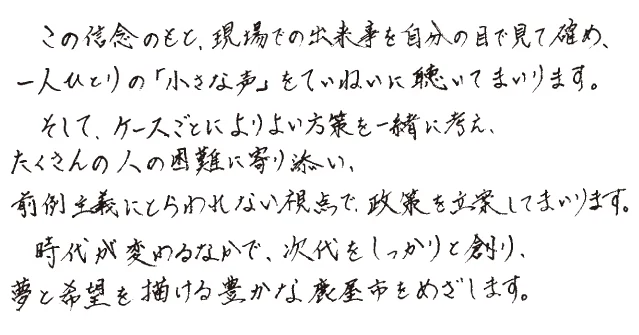 この信念のもと、現場での出来事を自分の目で見て確め、
一人ひとりの「小さな声」をていねいに聴いてまいります。
そして、ケースごとによりよい方策を一緒に考え、
たくさんの人の困難に寄り添い、
前例主義にとらわれない視点で、政策を立案してまいります。
時代が変わるなかで、次代をしっかりと創り、
夢と希望を描ける豊かな鹿屋市をめざします。